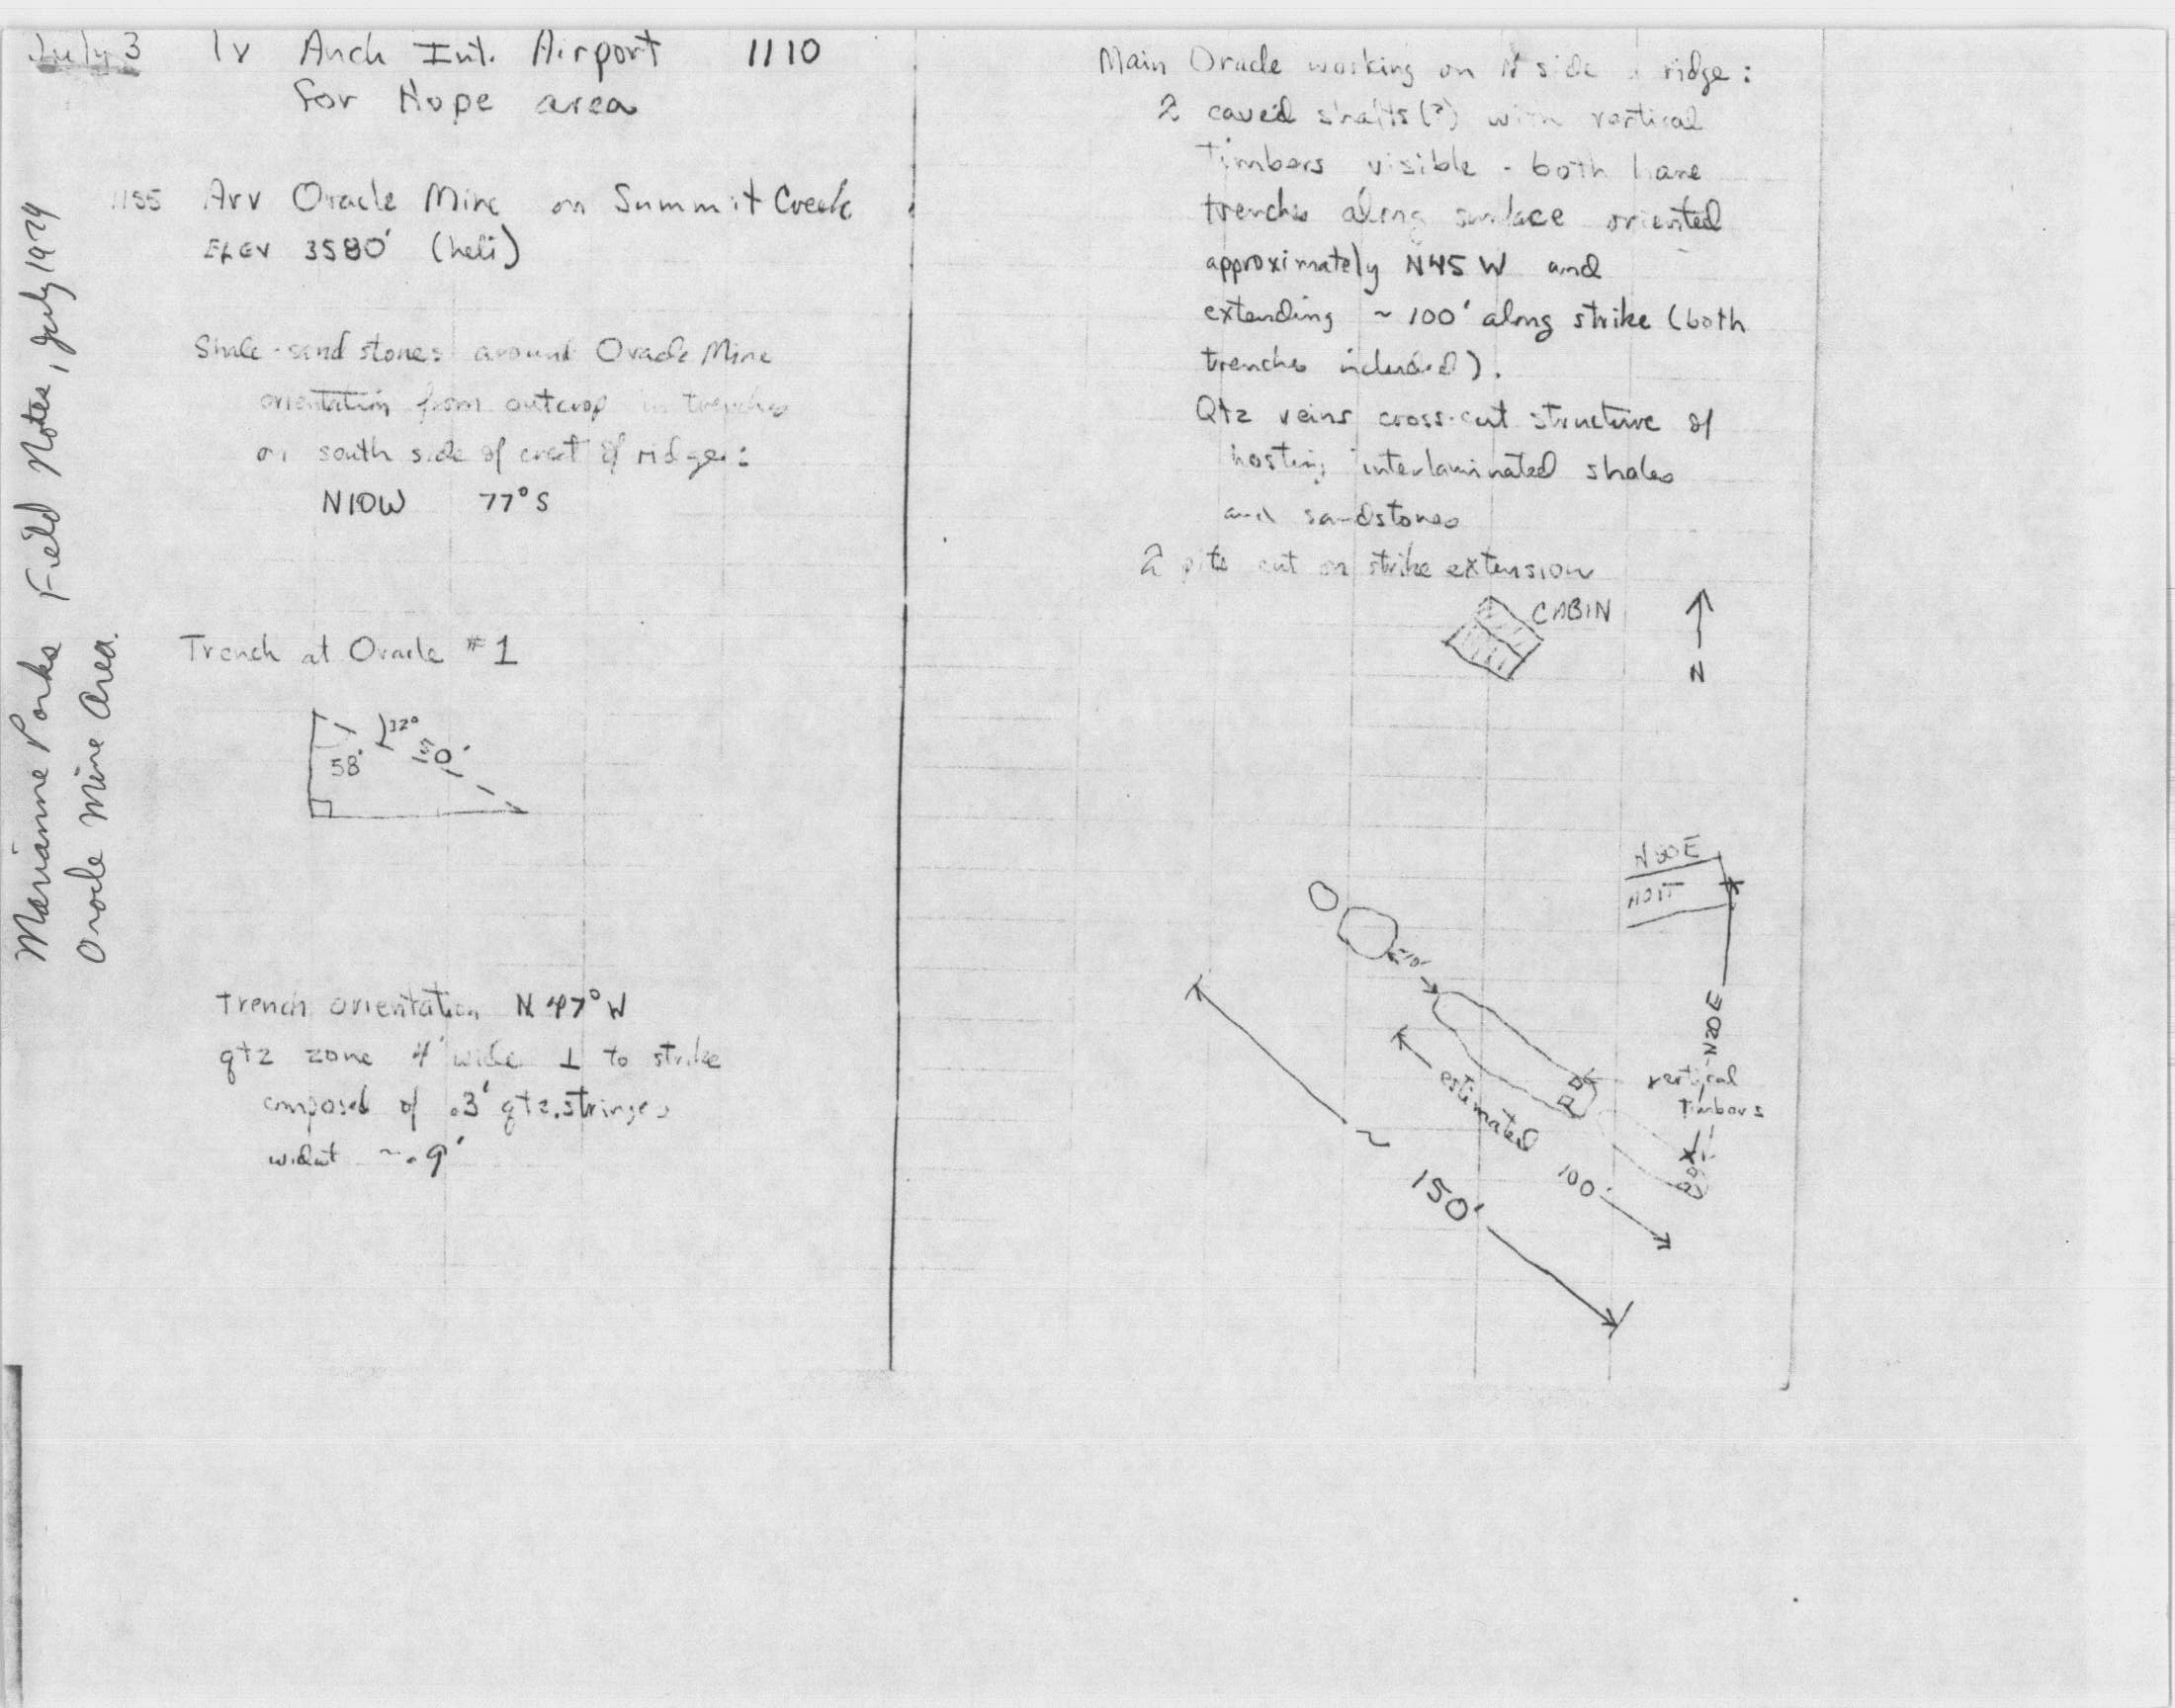 Marianne Parks Field Notes, July 1979
Oracle Mine Area.
July 3 lv Anch Int. Airport 1110
for Hope area
1155 Arv Oracle Mine on Summit Creek
ELEV 3580' (heli)
Shale-sandstones around Oracle Mine
orientation from outcrop in trenches
on south side of crest of ridge:
N10W 77°S
Trench at Oracle #1
32°
58°
Trench orientation N 47° W
qtz zone 4' wide ⊥ to strike
composed of .3' qtz. stringers
~.9'
Main Oracle working on N side ridge:
2 caved shafts(?) with vertical
timbers visible - both have
trenches along surface oriented
approximately N45W and
extending ~100' along strike (both
trenches included).
Qtz veins cross-cut structure of
hosting interlaminated shales
and sandstones
2 pits cut on strike extension
CABIN
N
N80E
ADIT
N20E
vertical
timbers
estimated 100'
~ 150'